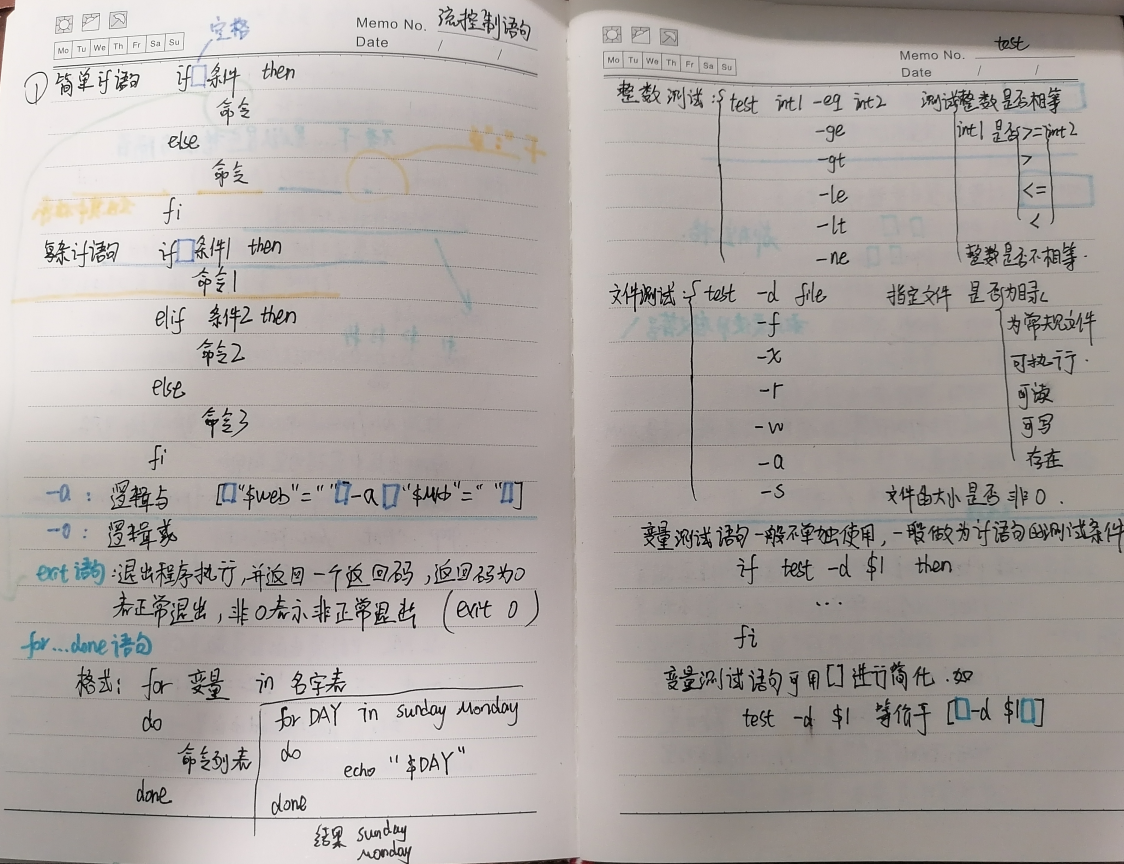 Mo Tu We Th Fr Sa Su
空格
Memo No. 流控制语句
Date / /
① 简单if语句 if□条件 then
命令
else
命令
fi
多条if语句 if□条件1 then
命令1
elif 条件2 then
命令2
else
命令3
fi
-a : 逻辑与 [□"$web"=" "□-a□"$web"=" "□]
-o : 逻辑或
exit语句:退出程序执行,并返回一个返回码,返回码为0
表正常退出,非0表示非正常退出 (exit 0)
for...done语句
格式: for 变量 in 名字表
do
命令列表
done
for DAY in sunday Monday
do
echo "$DAY"
done
结果 sunday
Monday
Mo Tu We Th Fr Sa Su
Memo No. test
Date / /
整数测试: test int1 -eq int2 测试整数是否相等
-ge int1 是否>=int2
-gt >
-le <=
-lt <
-ne 整数是否不相等.
文件测试: test -d file 指定文件 是否为目录
-f 为常规文件
-x 可执行.
-r 可读
-w 可写
-a 存在
-s 文件的大小是否非0.
变量测试语句一般不单独使用,一般做为if语句的测试条件
if test -d $1 then
...
fi
变量测试语句可用[]进行简化.如
test -d $1 等价于 [□-d $1□]